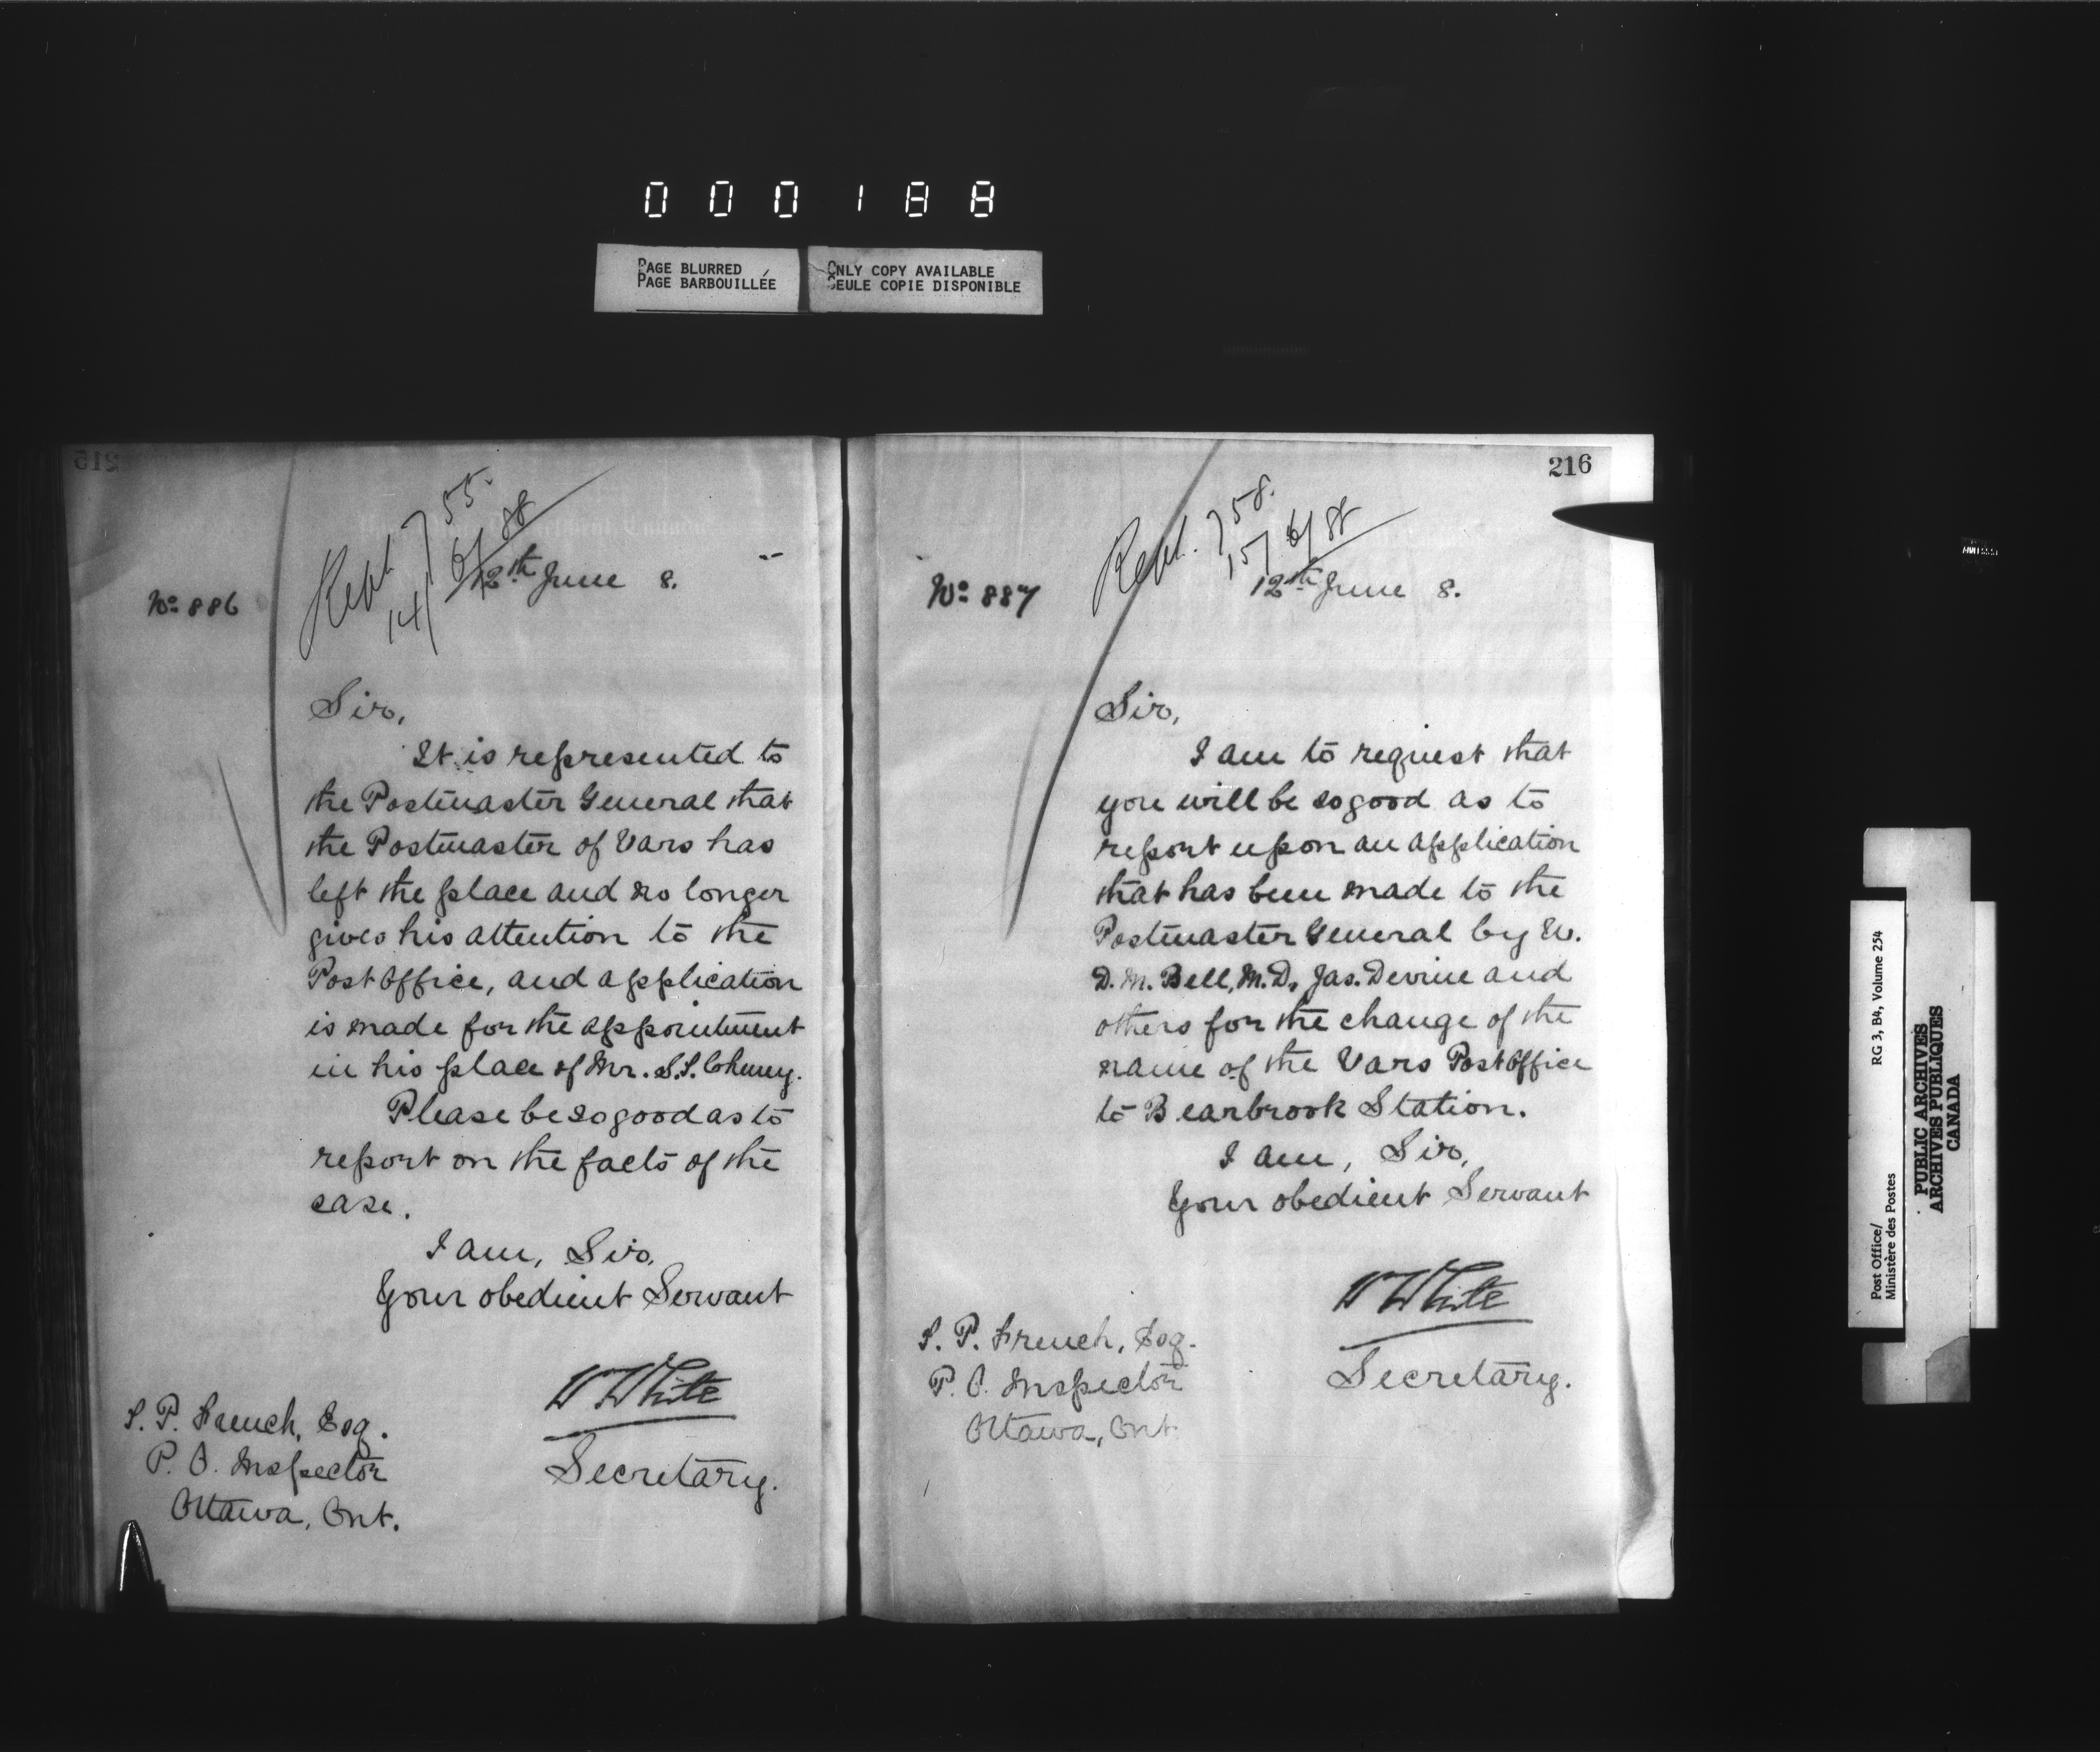 000188
PAGE BLURRED
PAGE BARBOUILLÉE
ONLY COPY AVAILABLE
SEULE COPIE DISPONIBLE
215
Rept. 755.
14/6/88
12th June 8.
No 886
Sir,
It is represented to
the Postmaster General that
the Postmaster of Vars has
left the place and no longer
gives his attention to the
Post Office, and application
is made for the appointment
in his place of Mr. S.S.
Please be so good as to
report on the facts of the
case.
I am, Sir,
Your obedient Servant
W White
Secretary.
T. P. French, Esq.
P. O. Inspector
Ottawa, Ont.
216
Rept. 758.
15/6/88
12th June 8.
No 887
Sir,
I am to request that
you will be so good as to
report upon an application
that has been made to the
Postmaster General by
D. M. Bell, M.D., Jas. Devine and
others for the change of the
name of the Vars Post Office
to Bearbrook Station.
I am, Sir,
Your obedient Servant
W White
Secretary.
T. P. French, Esq.
P. O. Inspector
Ottawa, Ont.
Post Office/
Ministère des Postes
RG 3, B4, Volume 254
PUBLIC ARCHIVES
ARCHIVES PUBLIQUES
CANADA